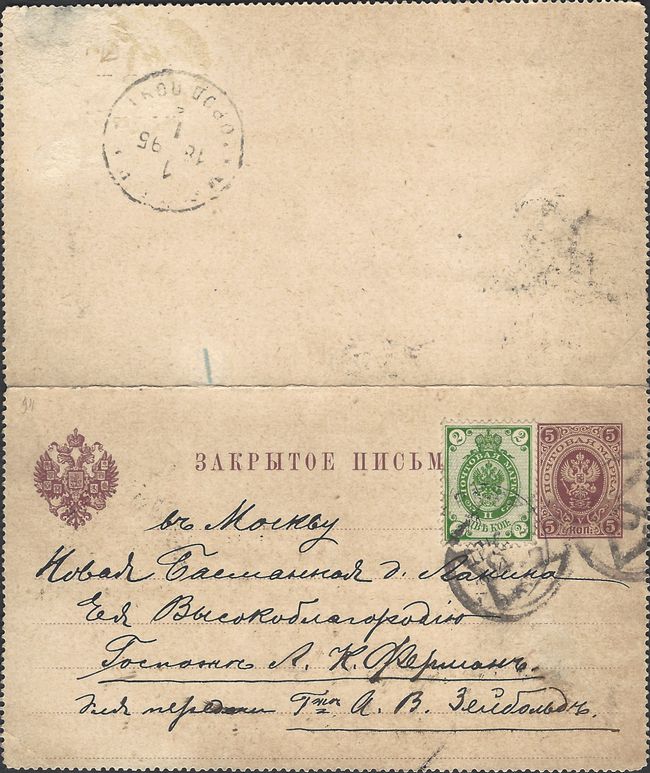 18
1
95
ЗАКРЫТОЕ ПИСЬМ
2 2
ПОЧТОВАЯ МАРКА
II
ДВѢ КОП.
2 2
5 5
ПОЧТОВАЯ МАРКА
5 КОП. 5
въ Москву
Новая Басманная д. Ланина
Ея Высокоблагородію
Госпожѣ Л. К. Ферманъ.
для передачи Г-жѣ А. В. Зейбольдъ.